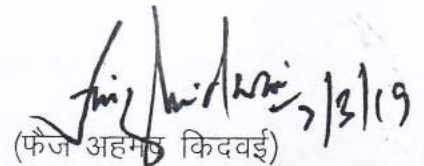 7/3/19
(फैज अहमद किदवई)